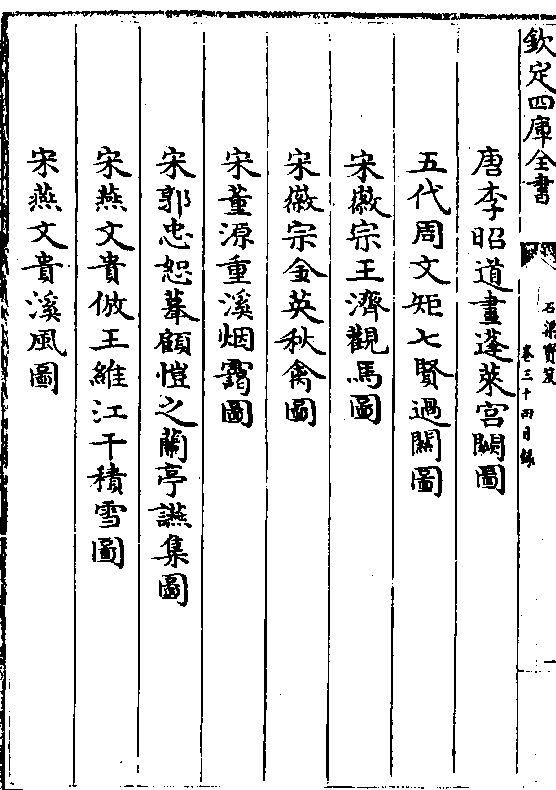 欽定四庫全書
石渠寶笈
卷三十四目錄
一
唐李昭道畫蓬萊宮闕圖
五代周文矩七賢過關圖
宋徽宗王濟觀馬圖
宋徽宗金英秋禽圖
宋董源重溪烟靄圖
宋郭忠恕摹顧愷之蘭亭讌集圖
宋燕文貴倣王維江干積雪圖
宋燕文貴溪風圖